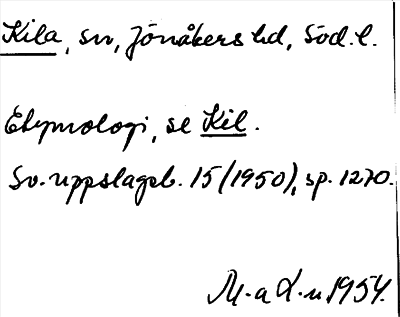 Kila, sn, Jönåkers hd, Söd. l.
Etymologi, se Kil.
Sv. uppslagsb. 15 (1950), sp. 1270.
M. a L. n 1954.